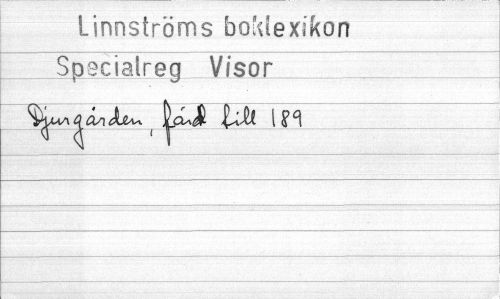 Linnströms boklexikon
Specialreg Visor
Djurgården, färd till 189